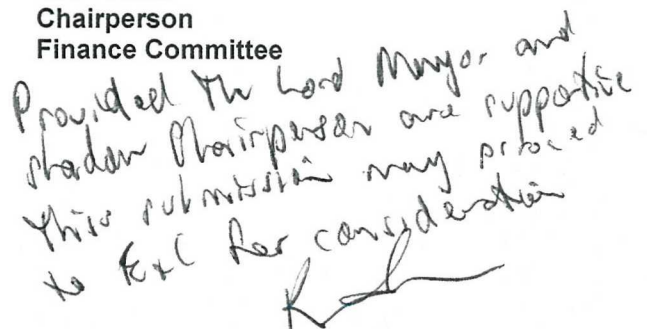 Chairperson
Finance Committee
Provided the Lord Mayor and
shadow Chairperson are supportive
this submission may proceed
to ExC for consideration